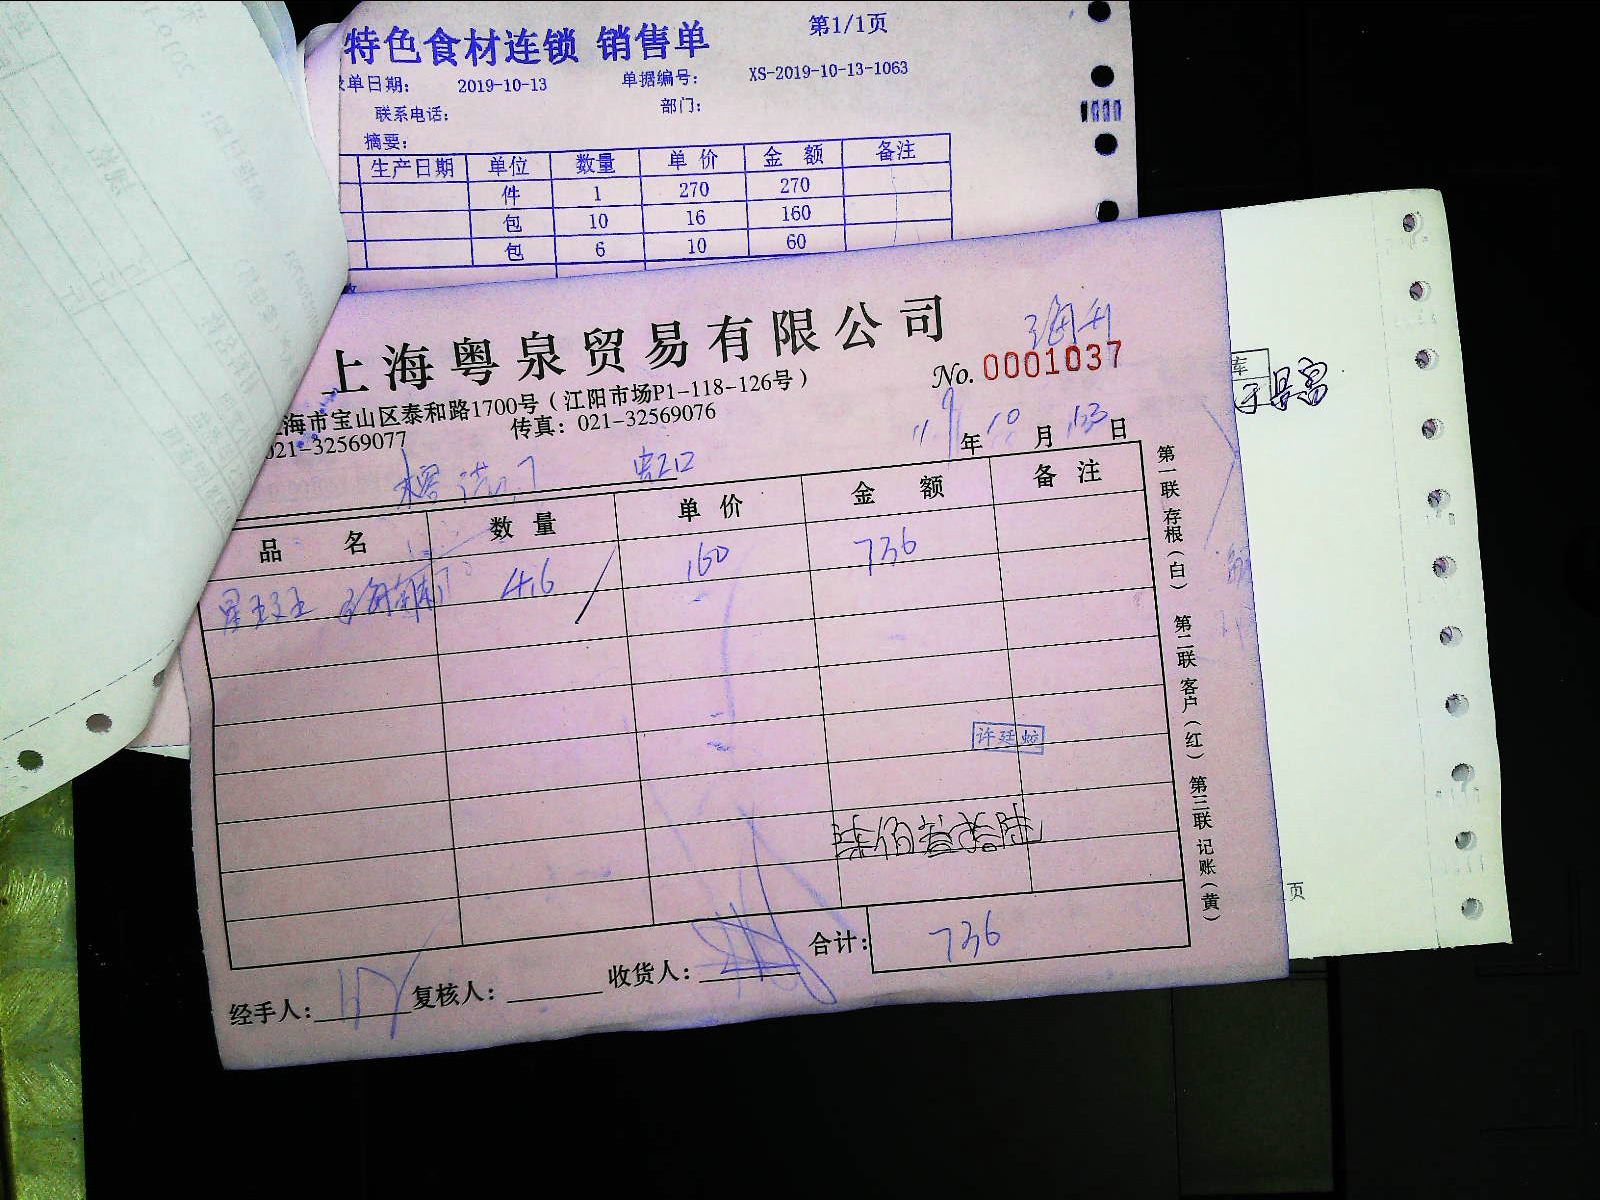 特色食材连锁 销售单
第1/1页
单日期: 2019-10-13 单据编号: XS-2019-10-13-1063
联系电话: 部门:
摘要:
生产日期 单位 数量 单价 金额 备注
件 1 270 270
包 10 16 160
包 6 10 60
上海粤泉贸易有限公司
No. 0001037
海市宝山区泰和路1700号(江阳市场P1-118-126号)
021-32569077 传真: 021-32569076
年 10 月 13 日
虹口
品名 数量 单价 金额 备注
4.6 160 736
许廷蛟
柒佰叁拾陆
合计: 736
经手人: 复核人: 收货人:
第一联 存根(白) 第二联 客户(红) 第三联 记账(黄)
库
页